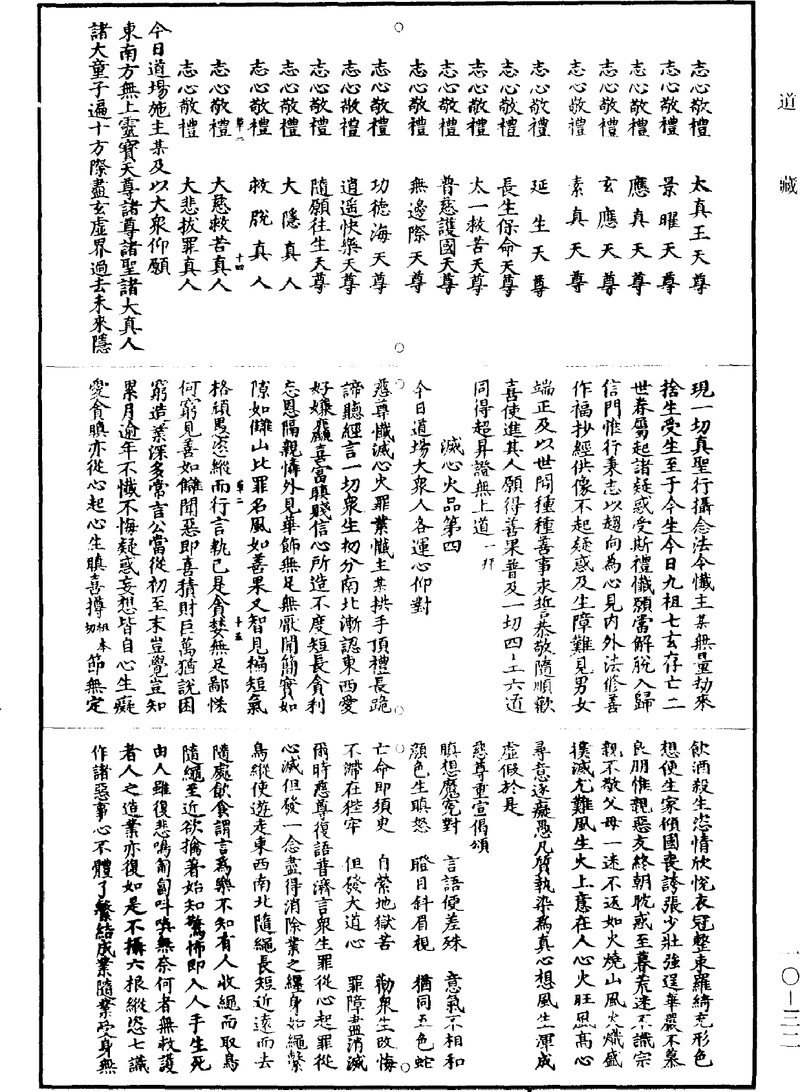 道藏
一〇—三一二
志心敬禮　太真王天尊
志心敬禮　景曜天尊
志心敬禮　應真天尊
志心敬禮　玄應天尊
志心敬禮　素真天尊
志心敬禮　延生天尊
志心敬禮　長生保命天尊
志心敬禮　太一救苦天尊
志心敬禮　普慈護國天尊
志心敬禮　無邊際天尊
志心敬禮　功德海天尊
志心敬禮　逍遥快樂天尊
志心敬禮　隨願往生天尊
志心敬禮　大隱真人
志心敬禮　救脫真人
第二　十四
志心敬禮　大慈救苦真人
志心敬禮　大悲拔罪真人
今日道場施主某及以大衆仰願
東南方無上靈寶天尊諸尊諸聖諸大真人
諸大童子遍十方際盡玄虛界過去未來隱
現一切真聖行攝念法令懺主某無量劫來
捨生受生至于今生今日九祖七玄存亡二
世眷屬起諸疑惑受斯禮懺願當解脫入歸
信門惟行秉志以趨向為心見内外法修善
作福抄經供像不起疑惑及生障難見男女
端正及以世間種種善事求哲恭敬隨順歡
喜使進其人願得善果普及一切四生六道
同得超昇證無上道
滅心火品第四
今日道場大衆人各運心仰對
慈尊懺滅心火罪業懺主某拱手頂禮長跪
諦聽經言一切衆生初分南北漸認東西愛
好嫌麤喜富瞋賤信心所造不度短長貪利
忘恩隔親憐外見華飾無足無厭聞簡實如
隙如雠山比罪名風如善果又智見褊短氣
第二　十五
格頑愚恣縱而行言執己是貪婪無足鄙悋
何窮見善如雠聞惡即喜積財巨萬猶説困
窮造業深多常言公當從初至末豈覺豈知
累月逾年不懺不悔疑惑妄想皆自心生癡
愛貪瞋亦從心起心生瞋喜撙祖本切節無定
飲酒殺生恣情欣悅衣冠整束羅綺充形色
想便生家傾國喪誇張少壯強逞華嚴不慕
良朋惟親惡友終朝耽惑至暮荒迷不識宗
親不敬父母一迷不返如火燒山風火熾盛
撲滅尤難風生火上意在人心火旺風高心
尋意逐癡愚凡質執染為真心想風生渾成
虛假於是
慈尊重宣偈頌
瞋想魔寃對　言語便差殊　意氣不相和
顔色生瞋怒　瞪目斜眉視　猶同五色蛇
亡命即須史　自縈地獄苦　勸衆生改悔
不滯在狴牢　但發大道心　罪障盡消滅
爾時慈尊復語普濟言衆生罪從心起罪從
心滅但發一念盡得消除業之纏身如繩繫
鳥縱使遊走東西南北隨繩長短近遠而去
隨處飲食謂言為樂不知有人收繩而取鳥
隨繩至近欲擒著始知驚怖即入人手生死
由人雖復悲鳴匍匐呌喚無奈何者無救護
者人之造業亦復如是不攝六根縱恣七識
作諸惡事心不體了繫結成業隨業受身無